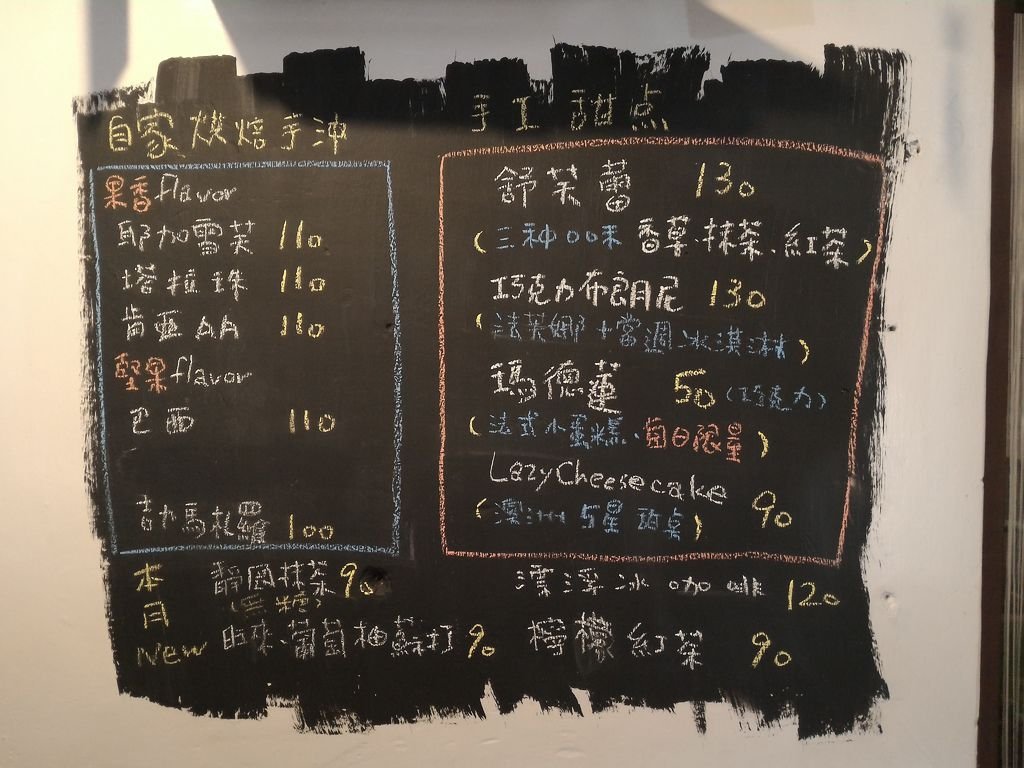 自家烘焙手沖
果香flavor
耶加雪芙 110
塔拉珠 110
肯亞AA 110
堅果flavor
巴西 110
吉力馬札羅 100
手工甜点
舒芙蕾 130
(三种口味 香草、抹茶、紅茶)
巧克力布朗尼 130
(法芙娜+當週冰淇淋)
瑪德蓮 50 (巧克力)
(法式小蛋糕、每日限量)
LazyCheesecake 90
(澳洲5星甜桌)
本月New
靜岡抹茶 90
(黑糖)
葡萄柚蘇打 90
漂浮冰咖啡 120
檸檬紅茶 90